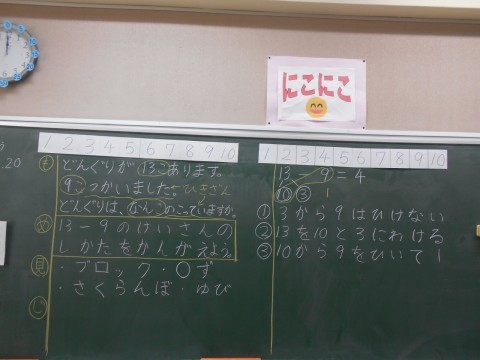 にこにこ
.20
1 2 3 4 5 6 7 8 9 10
も どんぐりが13こあります。
9こつかいました。ひきざん
どんぐりは、なんこのこっていますか。
め 13-9のけいさんの
しかたをかんがえよう。
見 ・ブロック・○ず
・さくらんぼ・ゆび
じ
1 2 3 4 5 6 7 8 9 10
13-9=4
10 3 1
① 3から9はひけない
② 13を10と3にわける
③ 10から9をひいて1